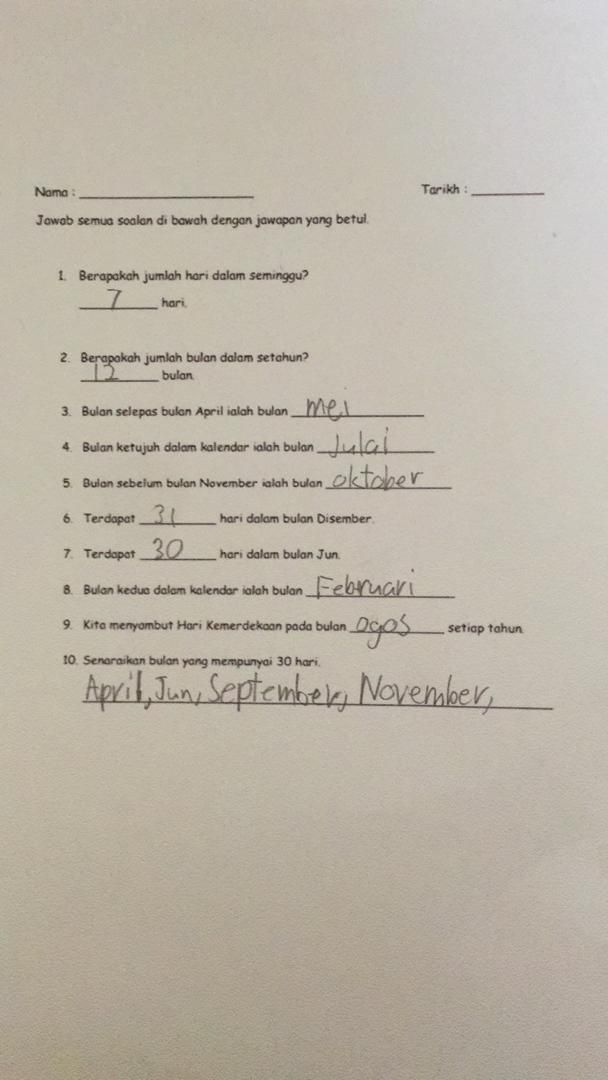 Nama : ____________ Tarikh : ________
Jawab semua soalan di bawah dengan jawapan yang betul.
1. Berapakah jumlah hari dalam seminggu?
7 hari.
2. Berapakah jumlah bulan dalam setahun?
12 bulan.
3. Bulan selepas bulan April ialah bulan mei
4. Bulan ketujuh dalam kalendar ialah bulan Julai
5. Bulan sebelum bulan November ialah bulan oktober
6. Terdapat 31 hari dalam bulan Disember.
7. Terdapat 30 hari dalam bulan Jun.
8. Bulan kedua dalam kalendar ialah bulan Februari
9. Kita menyambut Hari Kemerdekaan pada bulan ogos setiap tahun.
10. Senaraikan bulan yang mempunyai 30 hari.
April, Jun, September, November,